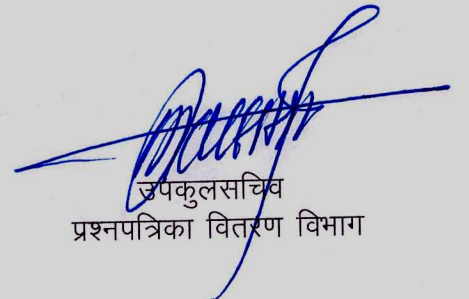 उपकुलसचिव
प्रश्नपत्रिका वितरण विभाग